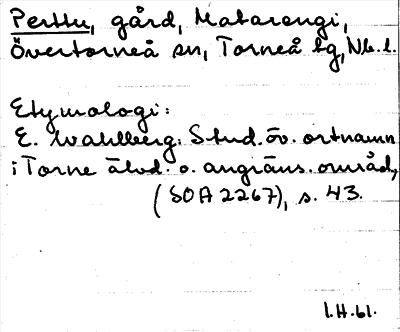 Perttu, gård, Matarengi,
Övertorneå sn, Torneå tg, Nb. l.
Etymologi:
E. Wahlberg: Stud. öv. ortnamn
i Torne älvd. o. angräns. områd,
(SOA 2267), s. 43.
I.H.61.